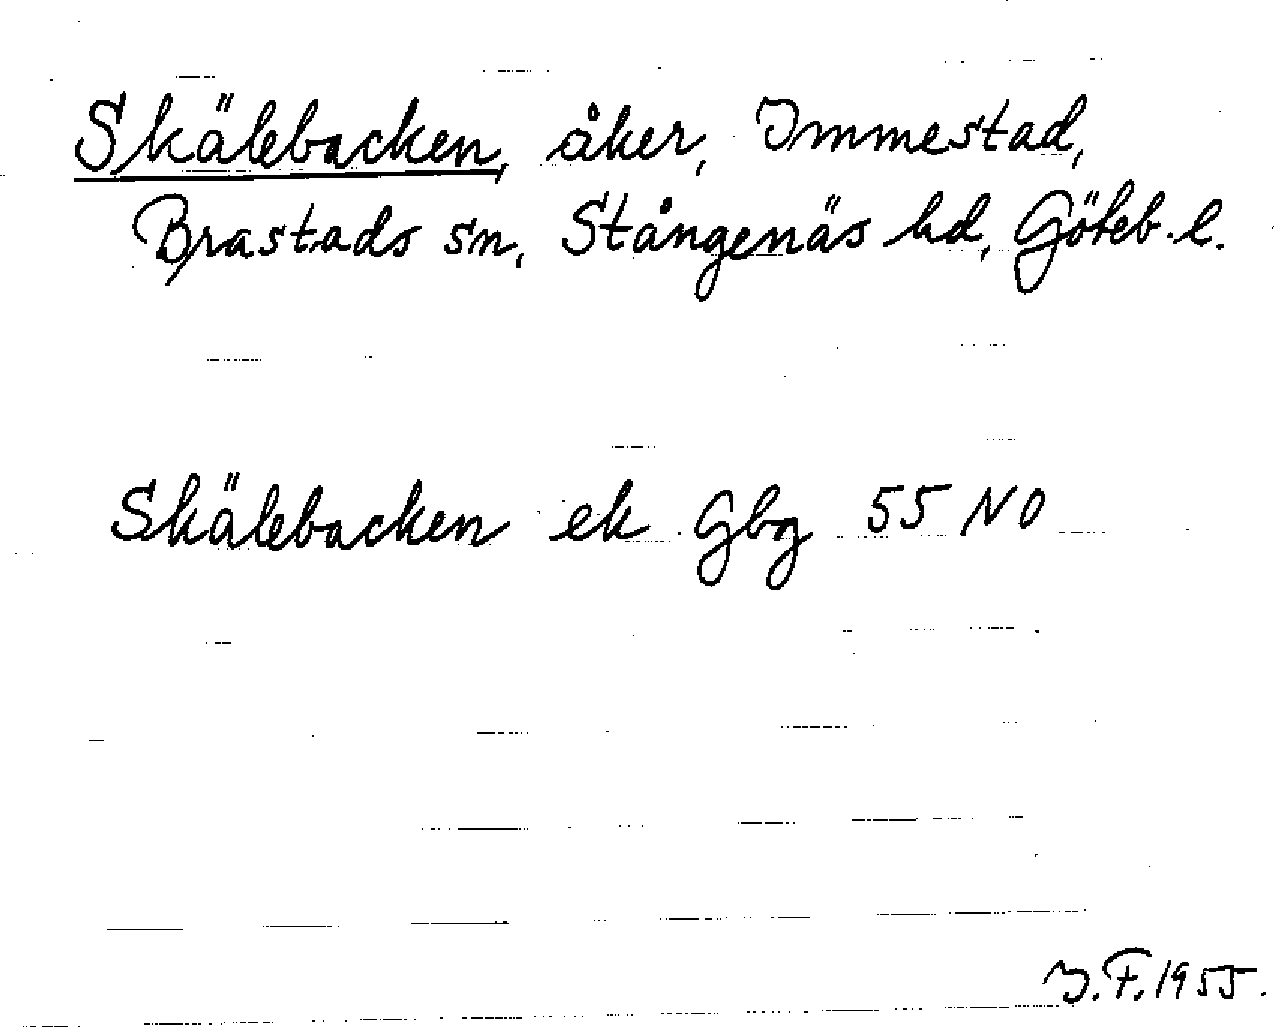 Skälebacken, åker, Immestad,
Brastads sn, Stångenäs hd, Göteb. l.
Skälebacken ek Gbg 55 NO
I. F. 1955.